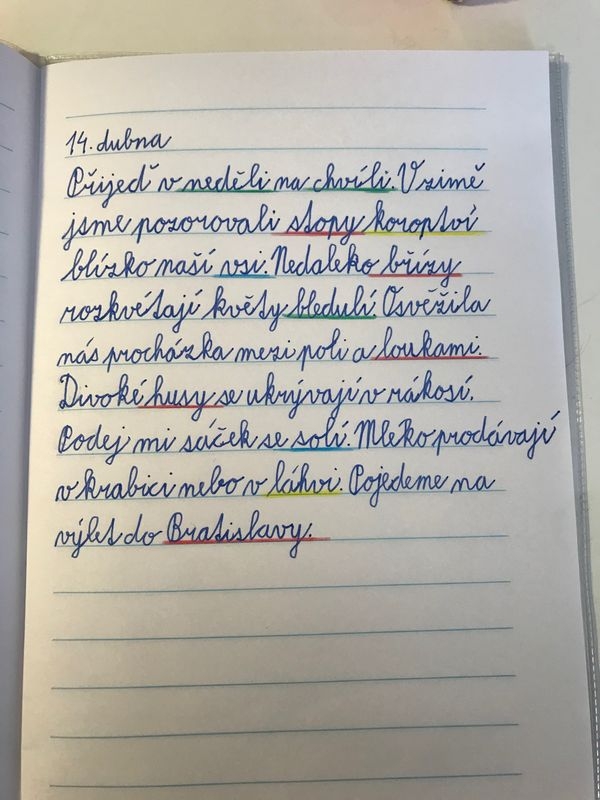 14. dubna
Přijeď v neděli na chvíli. V zimě
jsme pozorovali stopy koroptví
blízko naší vsi. Nedaleko břízy
rozkvétají květy bledulí. Osvěžila
nás procházka mezi poli a loukami.
Divoké husy se ukrývají v rákosí.
Podej mi sáček se solí. Mléko prodávají
v krabici nebo v láhvi. Pojedeme na
výlet do Bratislavy.